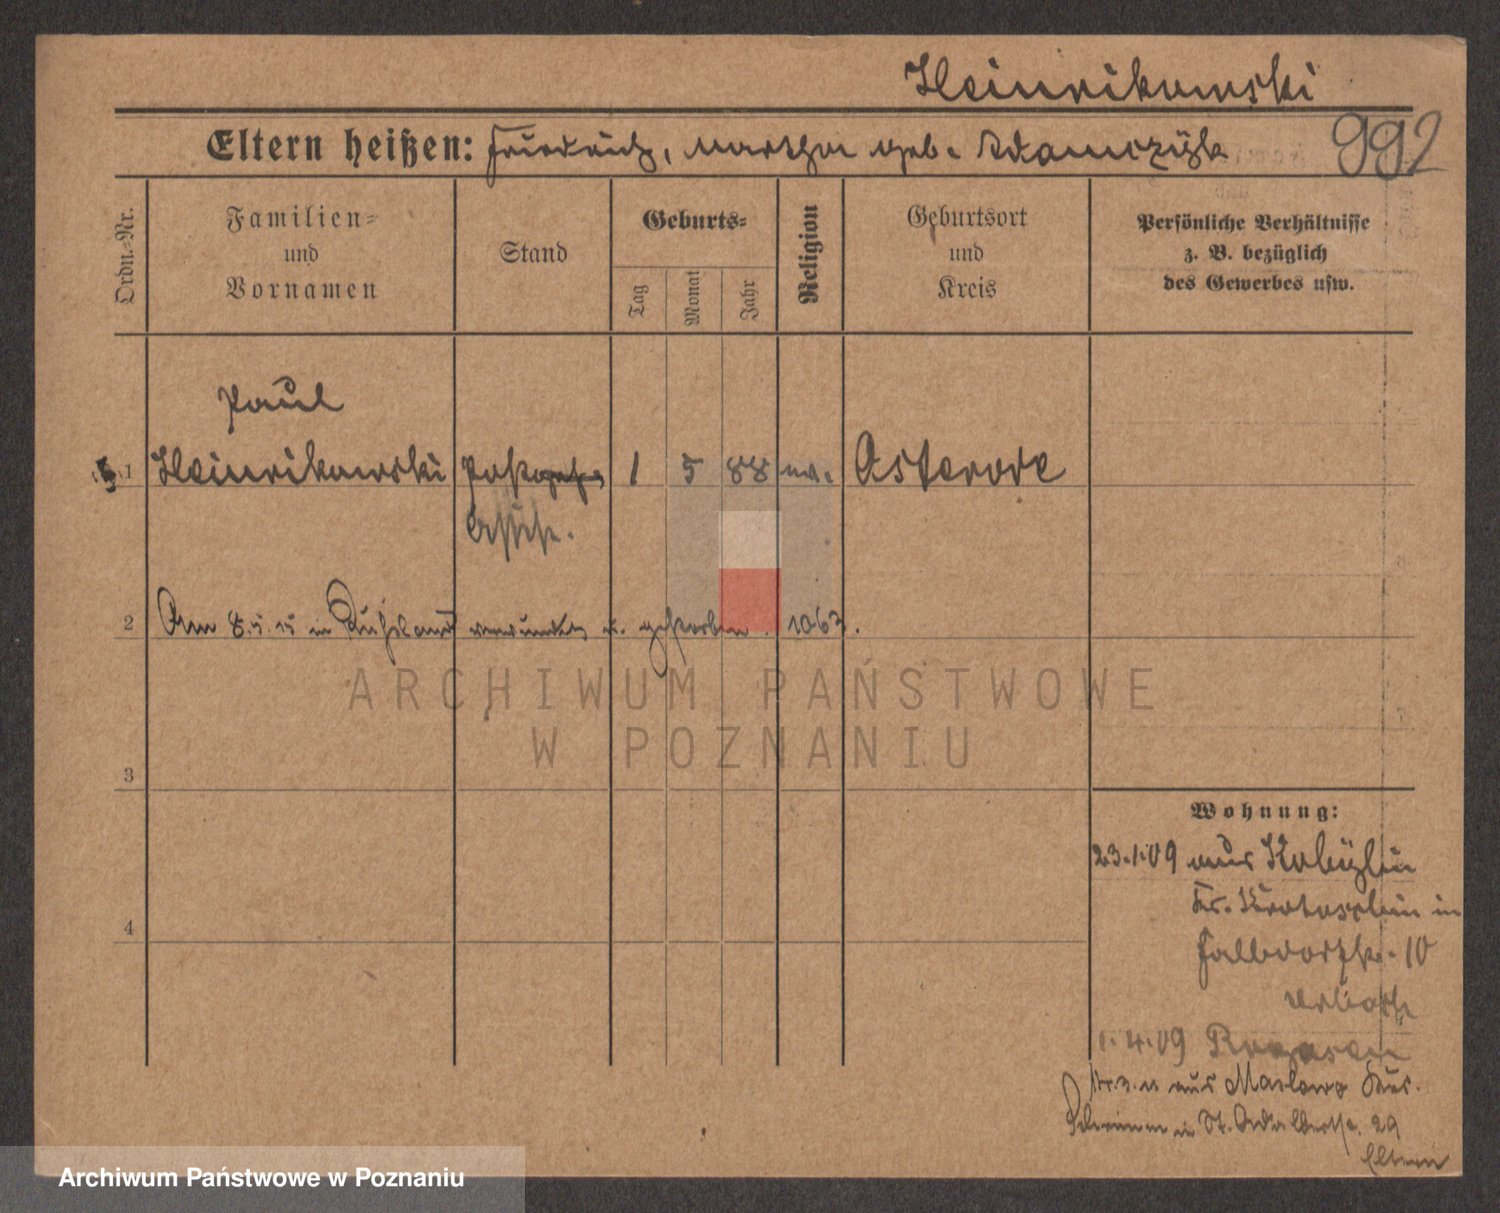 Heinrikowski
Eltern heißen: Friedrich, Martha geb. Adamczyk 992
Ordn.-Nr.
Familien=
und
Vornamen
Stand
Geburts=
Tag
Monat
Jahr
Religion
Geburtsort
und
Kreis
Persönliche Verhältnisse
z. B. bezüglich
des Gewerbes usw.
Paul
1 Heinrikowski 1 5 88 Osterode
2 Am 8.5.15 in Rußland verwundet u. gestorben. 1063.
ARCHIWUM PAŃSTWOWE
W POZNANIU
3
Wohnung:
23.1.09 aus Kobylin
Kr. Krotoschin in
10
4
1.4.09 Rogasen
aus
Schrimm in St. Adalbertstr. 29
Eltern
Archiwum Państwowe w Poznaniu